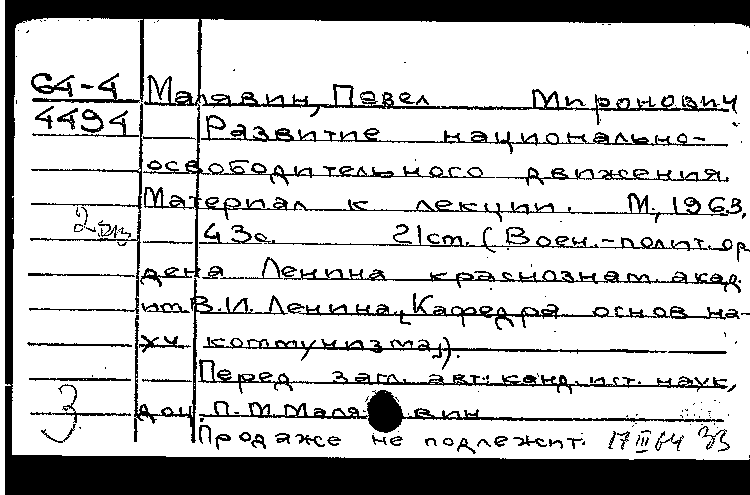 64-4 Малявин, Павел Миронович
4494 Развитие национально-
освободительного движения.
Материал к лекции. М., 1963.
2 экз 43с. 21см. (Воен.-полит. ор
дена Ленина краснознам. акад.
им. В.И. Ленина. Кафедра основ на-
уч коммунизма).
Перед загл. авт: канд. ист. наук,
3 доц. П. М. Малявин
Продаже не подлежит. 17 III 64 33